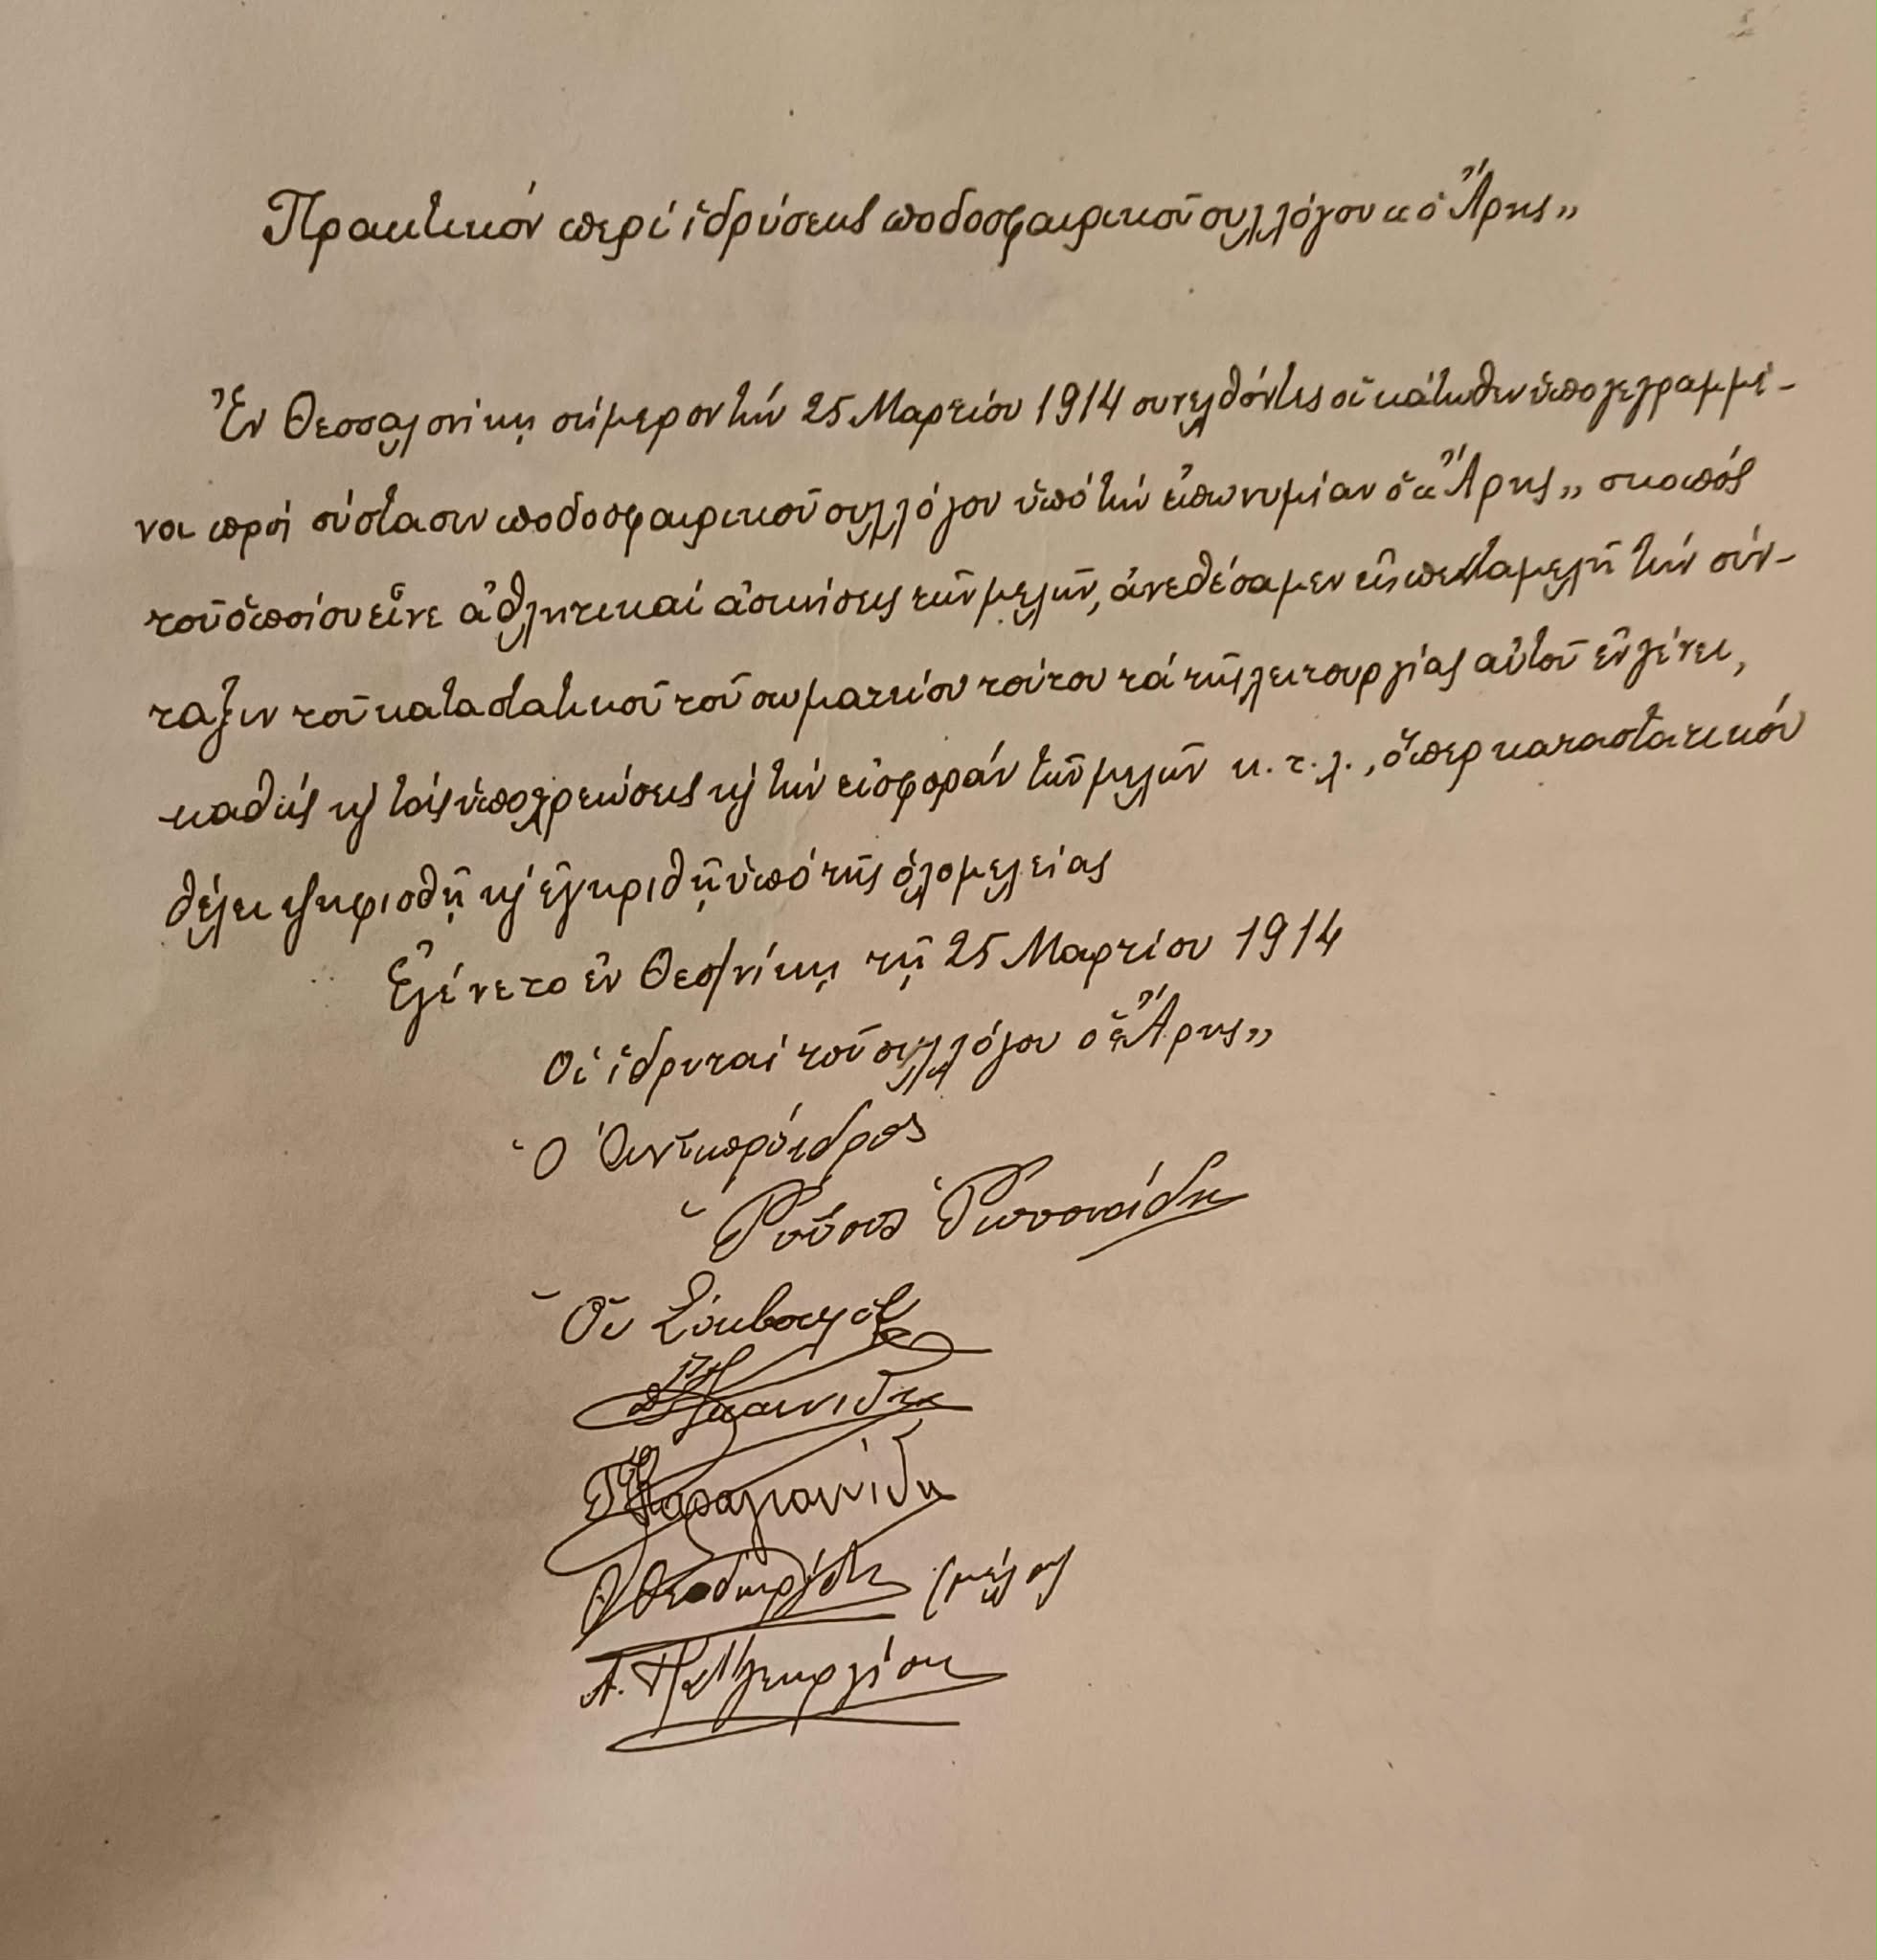 Πρακτικόν περί ἱδρύσεως ποδοσφαιρικοῦ συλλόγου «ὁ Ἄρης»
Ἐν Θεσσαλονίκῃ σήμερον τήν 25 Μαρτίου 1914 συνελθόντες οἱ κάτωθεν ὑπογεγραμμέ-
νοι πρός σύστασιν ποδοσφαιρικοῦ συλλόγου ὑπό τήν ἐπωνυμίαν ὁ «Ἄρης» σκοπός
τοῦ ὁποίου εἶνε ἀθλητικαί ἀσκήσεις τῶν μελῶν, ἀνεθέσαμεν εἰς πενταμελῆ τήν σύν-
ταξιν τοῦ καταστατικοῦ τοῦ σωματείου τούτου τά τῆς λειτουργίας αὐτοῦ ἐν γένει,
καθώς ϗ τάς ὑποχρεώσεις ϗ τήν εἰσφοράν τῶν μελῶν κ.τ.λ., ὅπερ καταστατικόν
θέλει ψηφισθῇ ϗ ἐγκριθῇ ὑπό τῆς ὁλομελείας
Ἐγένετο ἐν Θεσ/νίκῃ τῇ 25 Μαρτίου 1914
Οἱ ἱδρυταί τοῦ συλλόγου ὁ «Ἄρης»
Ὁ Ἀντιπρόεδρος
Οἱ Σύμβουλοι
Καραγιαννίδης
Θεοδωρίδης (μέλος)
Α. γεωργίου